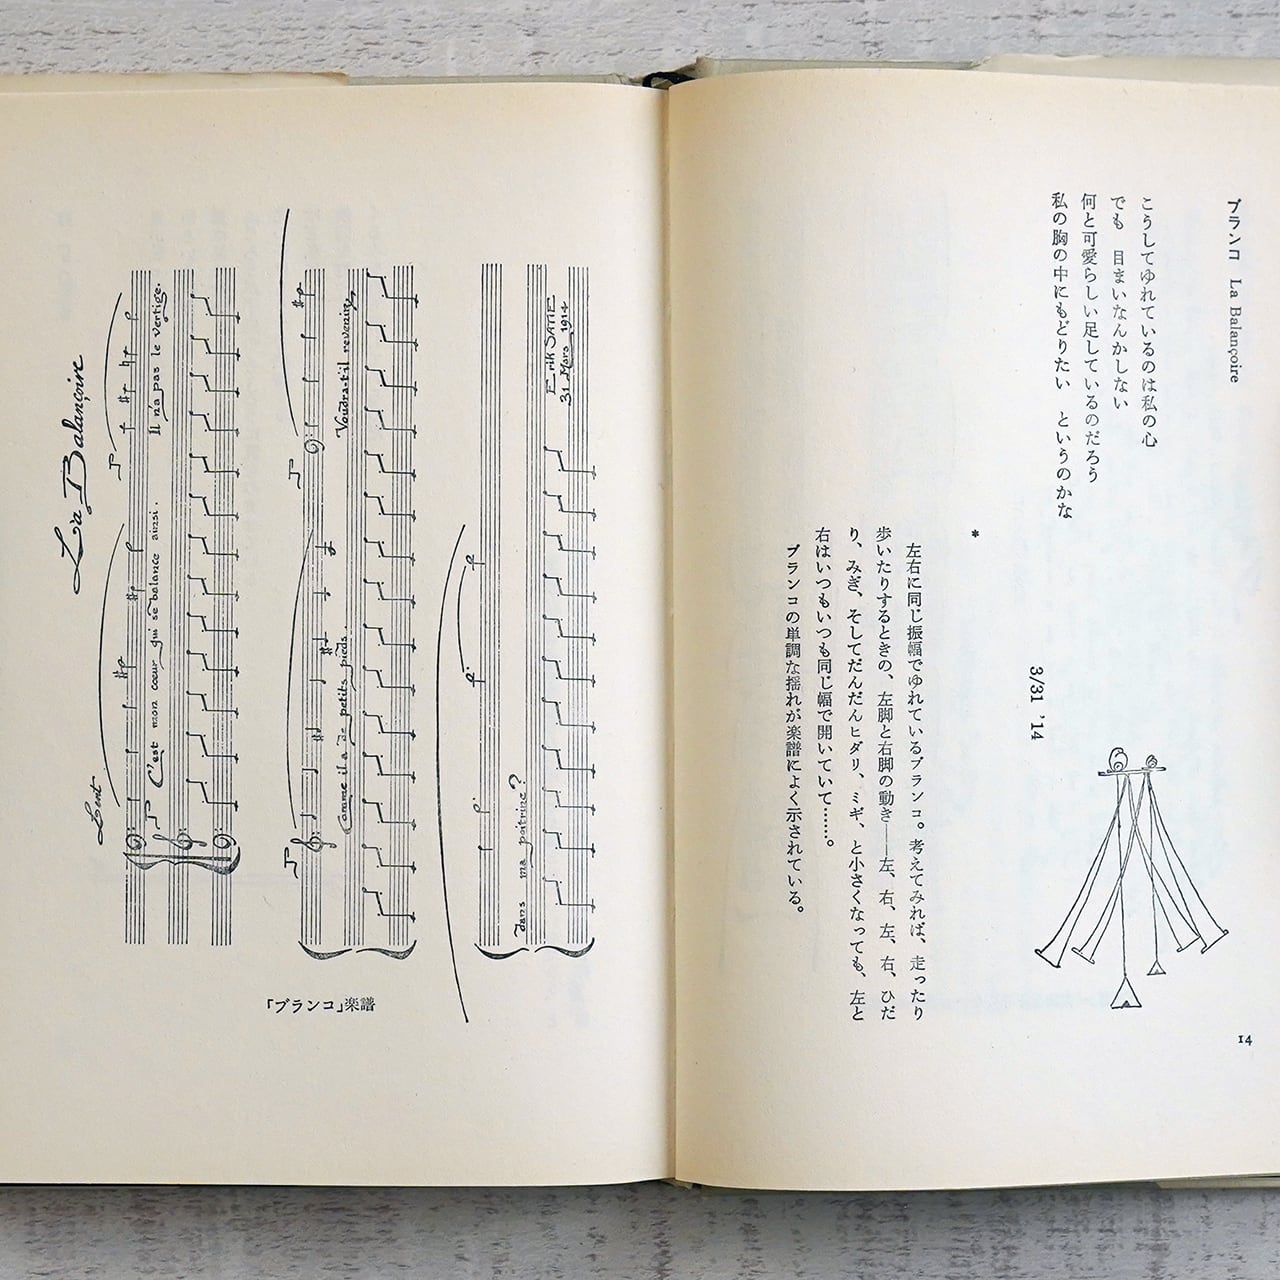 ブランコ La Balançoire
こうしてゆれているのは私の心
でも 目まいなんかしない
何と可愛らしい足しているのだろう
私の胸の中にもどりたい というのかな
3/31 '14
*
左右に同じ振幅でゆれているブランコ。考えてみれば、走ったり
歩いたりするときの、左脚と右脚の動き——左、右、左、右、ひだ
り、みぎ、そしてだんだんヒダリ、ミギ、と小さくなっても、左と
右はいつもいつも同じ幅で開いていて……。
ブランコの単調な揺れが楽譜によく示されている。
14
La Balançoire
Lent
C'est mon cœur qui se balance ainsi. Il n'a pas le vertige.
Comme il a de petits pieds. Voudra-t'il revenir
dans ma poitrine?
Erik SATIE
31 Mars 1914
「ブランコ」楽譜